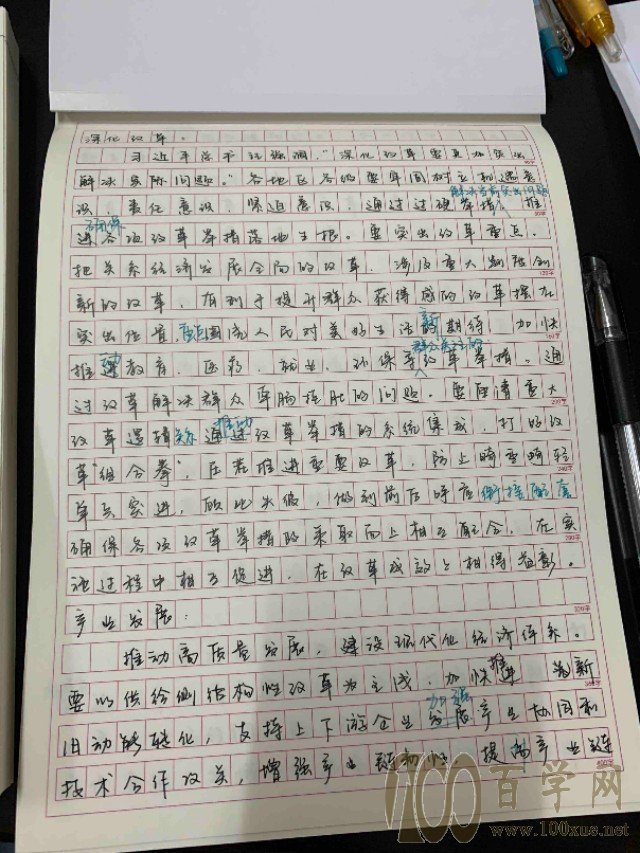 深化改革。
习近平总书记强调，"深化改革要更加突出
解决实际问题。"各地区各部要牢固树立机遇意
解决当前突出问题
识，责任意识，紧迫意识，通过过硬举措，推
确保
进各项改革举措落地生根。要突出改革重点，
把关系经济发展全局的改革，涉及重大制度创
新的改革，有利于提升群众获得感的改革摆在
突出位置，紧围绕人民对美好生活新期待，加快
推进教育、医疗、就业、环保等改革举措。通
过改革解决群众牵肠挂肚的问题。要厘清重大
推动
改革逻辑关系，通过改革举措的系统集成，打好改
革"组合拳"，在若推进重要改革，防止畸重畸轻
单兵突进，顾此失彼，做到前后呼应衔接配套
确保各项改革举措的采取而上相互配合，在实
施过程中相互促进，在改革成效上相得益彰。
产业发展：
推动高质量发展，建设现代化经济体系。
要以供给侧结构性改革为主线，加快推 为新
加强
旧动能转化，支持上下游企业产业协同和
技术合作攻关，增强产业链韧性，提高产业链
100百学网
www.100xue.net